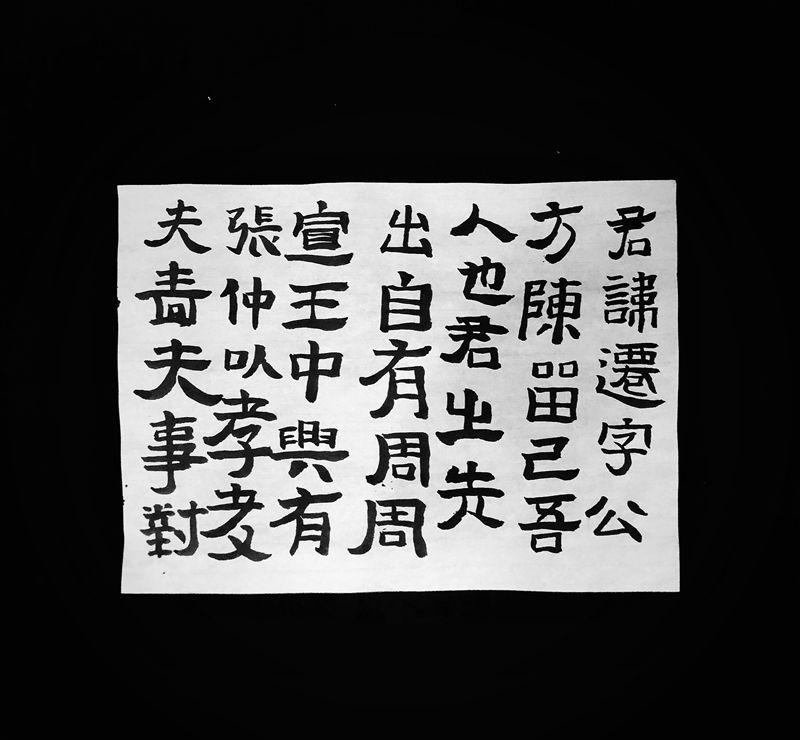 君諱遷字公
方陳留己吾
人也君之先
出自有周周
宣王中興有
張仲以孝友
夫嗇夫事對